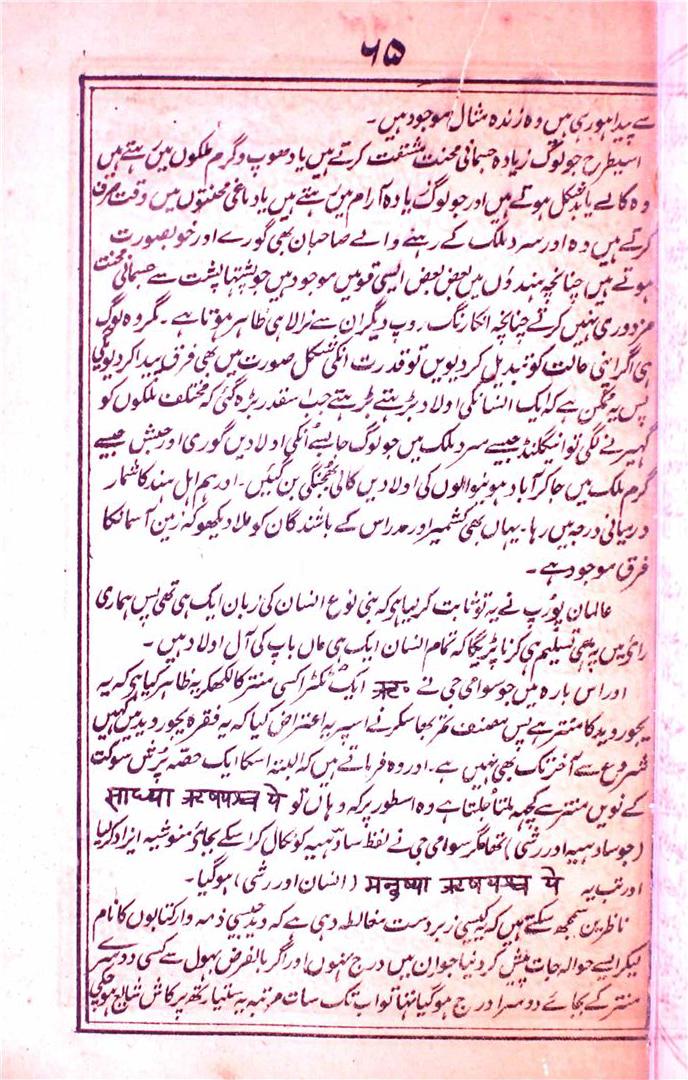 ۶۵
سے پیدا ہو رہی ہیں وہ زندہ مثال موجود ہیں۔
اسیطرح جو لوگ زیادہ جسمانی محنت مشقت کرتے ہیں یا دھوپ و گرم ملکوں میں رہتے ہیں
وہ کالے یا بدشکل ہوتے ہیں اور جو لوگ زیادہ آرام میں رہتے ہیں یا دماغی محنتوں میں وقت صرف
کرتے ہیں وہ اور سرد ملک کے رہنے والے صاحبان بھی گورے اور خوبصورت
ہوتے ہیں چنانچہ ہندؤں میں بعض بعض ایسی قومیں موجود ہیں جو پشتہا پشت سے جسمانی محنت
مزدوری نہیں کرتے چنانچہ انکا رنگ روپ دیگران سے نرالا ہی ظاہر ہوتا ہے۔ مگر وہ لوگ
ہی اگر اپنی حالت کو تبدیل کر دیویں تو قدرت انکی شکل صورت میں بھی فرق پیدا کر دیویگی
پس یہ ممکن ہے کہ ایک انسانکی اولاد بڑہتے بڑہتے جب اسقدر بڑہ گئی کہ مختلف ملکوں کو
گہیرنے لگی تو انگلینڈ جیسے سرد ملک میں جو لوگ جا بسے اُنکی اولادیں گوری اور حبش جیسے
گرم ملک میں جا کر آباد ہونیوالوں کی اولادیں کالی بھُجنگی بن گئیں۔ اور ہم اہل ہند کا شمار
درمیانی درجہ میں رہا۔ یہاں بھی کشمیر اور مدراس کے باشندگان کو ملا دیکھو کہ زمین آسمانکا
فرق موجود ہے۔
عالمان یورپ نے یہ تو ثابت کر لیا ہی کہ بنی نوع انسان کی زبان ایک ہی تھی پس ہماری
رائے میں یہ بھی تسلیم ہی کرنا پڑیگا کہ تمام انسان ایک ہی ماں باپ کی آل اولاد ہیں۔
اور اس بارہ میں جو سوامی جی نے ऋ॰ ایک ٹکڑا کسی منتر کا لکھکر یہ ظاہر کیا ہی کہ یہ
یجور وید کا منتر ہے پس مصنف تمر بھاسکر نے اسپر یہ اعتراض کیا کہ یہ فقرہ یجور وید میں کہیں
شروع سے آخر تک بھی نہیں ہے۔ اور وہ فرماتے ہیں کہ البتہ اسکا ایک حصہ پُرش سوکت
کے نویں منتر سے کچھ ملتا جلتا ہے وہ اسطور پر کہ وہاں تو साध्या ऋषयश्च ये
(جو سادہیہ اور رشی) تھا مگر سوامی جی نے لفظ سادہیہ کو نکال کر اسکے بجائے منوشیہ ایزاد کر لیا
اور تب یہ मनुष्या ऋषयश्च ये (انسان اور رشی) ہو گیا۔
ناظرین سمجھ سکتے ہیں کہ یہ کیسی زبردست مغالطہ دہی ہے کہ وید جیسی ذمہ وار کتابوں کا نام
لیکر ایسے حوالہ جات پیش کر دینا جو ان میں درج نہوں اور اگر بالفرض بہول سے کسی دوسرے
منتر کے بجائے دوسرا درج ہو گیا تہا تو اب تک سات مرتبہ یہ ستیارتھ پرکاش شایع ہو چکی